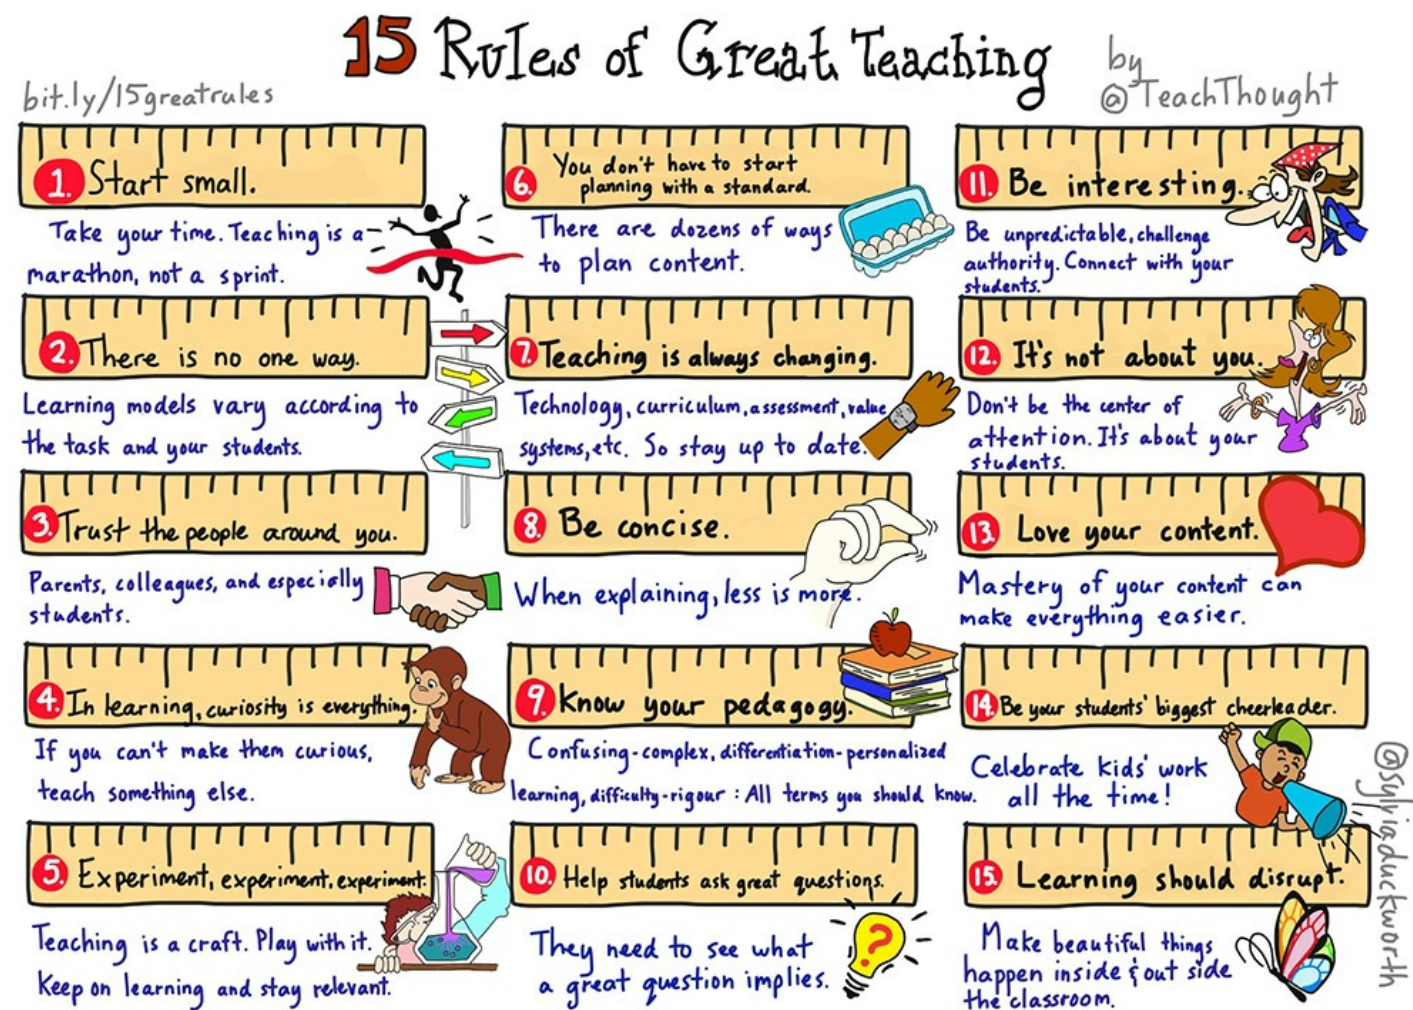 15 Rules of Great Teaching
by
@TeachThought
bit.ly/15greatrules
1. Start small.
Take your time. Teaching is a
marathon, not a sprint.
2. There is no one way.
Learning models vary according to
the task and your students.
3. Trust the people around you.
Parents, colleagues, and especially
students.
4. In learning, curiosity is everything.
If you can't make them curious,
teach something else.
5. Experiment, experiment, experiment.
Teaching is a craft. Play with it.
Keep on learning and stay relevant.
6. You don't have to start
planning with a standard.
There are dozens of ways
to plan content.
7. Teaching is always changing.
Technology, curriculum, assessment, value
systems, etc. So stay up to date.
8. Be concise.
When explaining, less is more.
9. Know your pedagogy.
Confusing-complex, differentiation-personalized
learning, difficulty-rigour : All terms you should know.
10. Help students ask great questions.
They need to see what
a great question implies.
?
11. Be interesting.
Be unpredictable, challenge
authority. Connect with your
students.
12. It's not about you.
Don't be the center of
attention. It's about your
students.
13. Love your content.
Mastery of your content can
make everything easier.
14. Be your students' biggest cheerleader.
Celebrate kids' work
all the time!
15. Learning should disrupt.
Make beautiful things
happen inside & out side
the classroom.
@sylviaduckworth